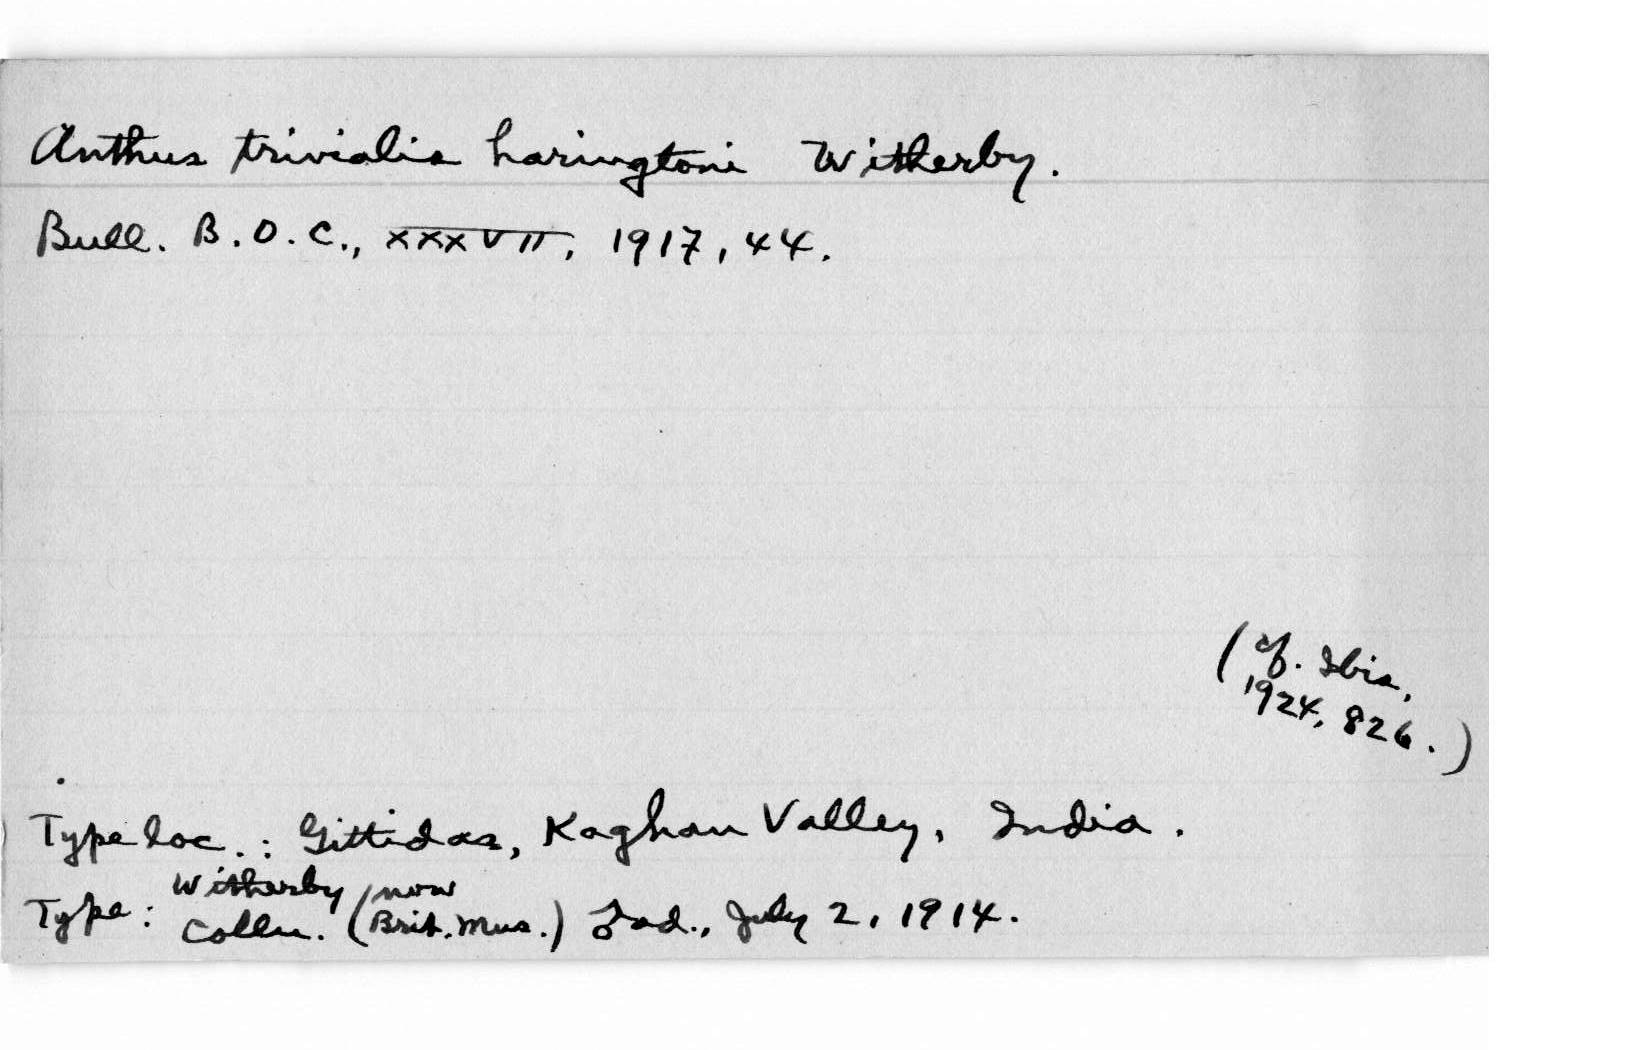 Anthus trivialis haringtoni Witherby.
Bull. B.O.C., XXXVII, 1917, 44.
(cf. Ibis,
1924, 826.)
Type loc.: Gittidas, Kaghan Valley, India.
Type: Witherby Colln. (now Brit. Mus.) ♂ ad., July 2, 1914.